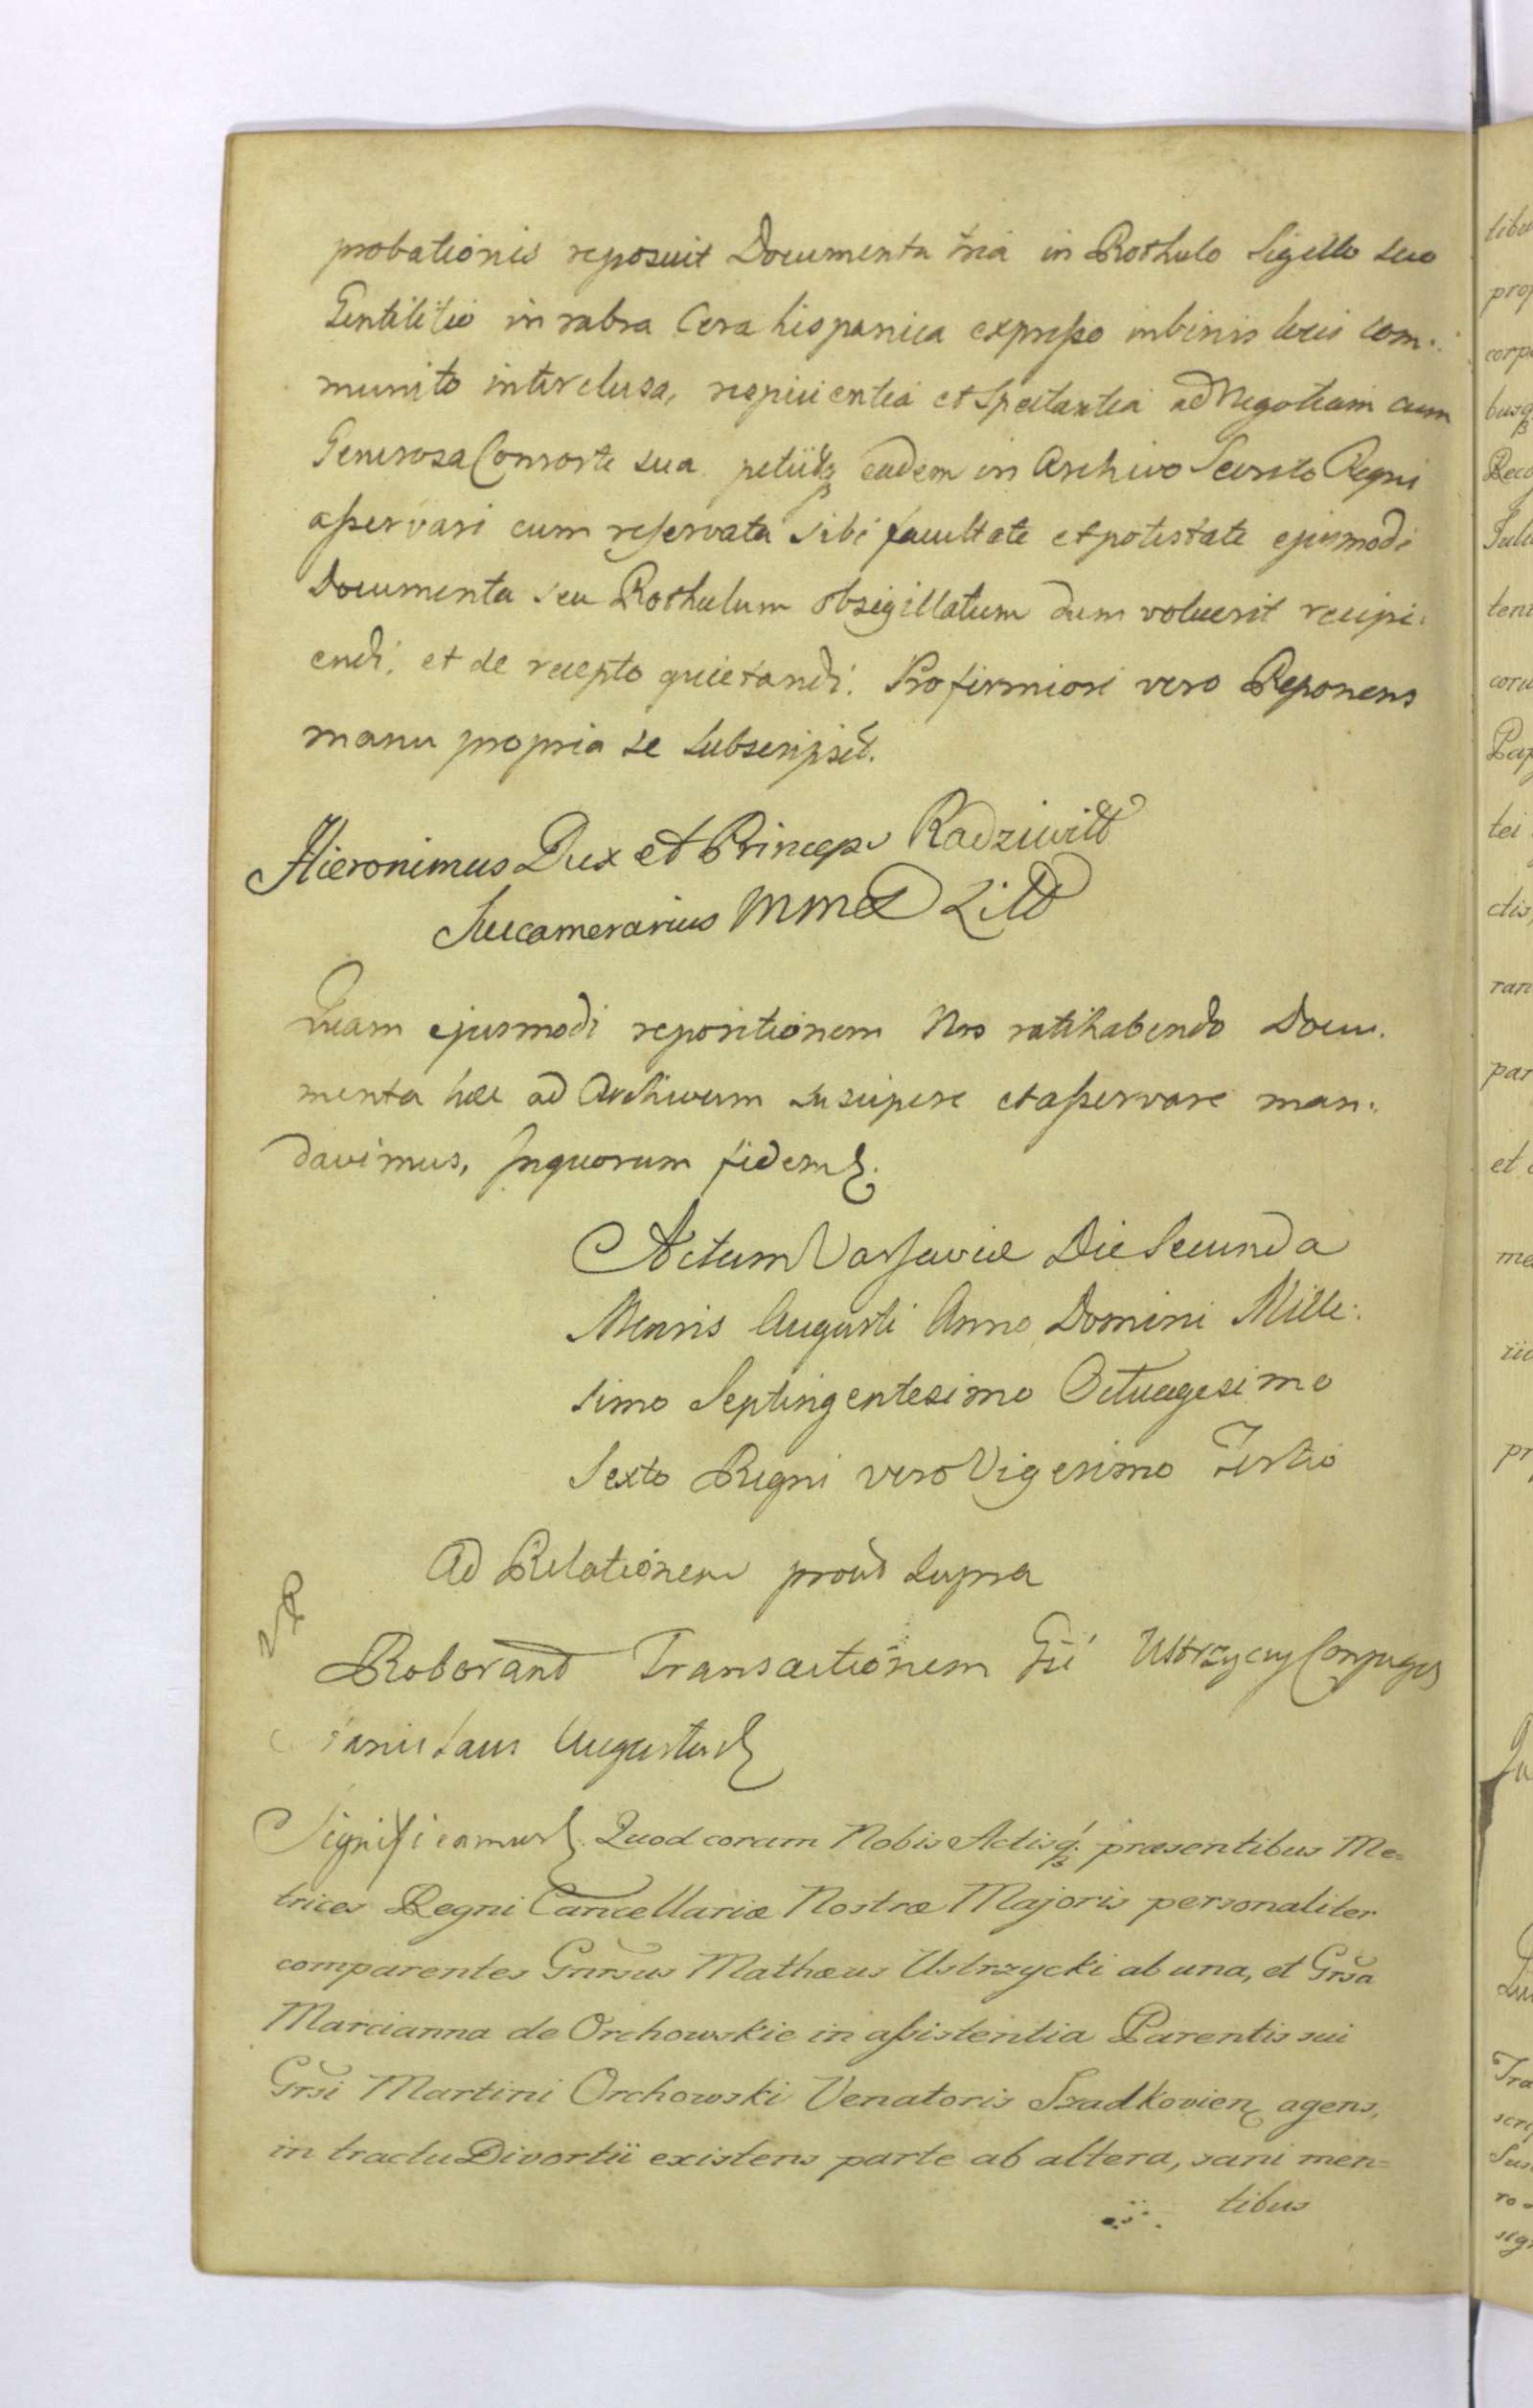 probationis reposuit Documenta tria in Rothulo Sigillo suo
Gentilitio in rubra Cera hispanica expresso in binis locis com:
munito interclusa, respicientia et Spectantia ad Negotium cum
Generosa Consorte sua petiitq eadem in Archivo Secreto Regni
asservari cum reservata sibi facultate et potestate ejusmodi
Documenta seu Rothulum obsigillatum dum voluerit recipi:
endi, et de recepto quietandi. Pro firmiori vero Reponens
manu propria se subscripsit.
Hieronimus Dux et Princeps Radziwiłł
Succamerarius MMD Litt
Quam ejusmodi repositionem Nos ratihabendo Docu:
menta hæc ad Archivum suscipere et asservare man:
davimus, In quorum fidem
Actum Varsaviæ Die Secunda
Mensis Augusti Anno Domini Mille:
simo Septingentesimo Octuagesimo
Sexto Regni vero Vigesimo Tertio
Ad Relationem prout supra
Roborant Transactionem Gsi Ustrzyccy Conjuges
Stanislaus Augustus
Significamus Quod coram Nobis Actisq. præsentibus Me=
trices Regni Cancellariæ Nostræ Majoris personaliter
comparentes Gnrsus Mathæus Ustrzycki ab una, et Grsa
Marcianna de Orchowskie in assistentia Parentis sui
Grsi Martini Orchowski Venatoris Szadkovien agens,
in tractu Divortii existens parte ab altera, sani men=
tibus